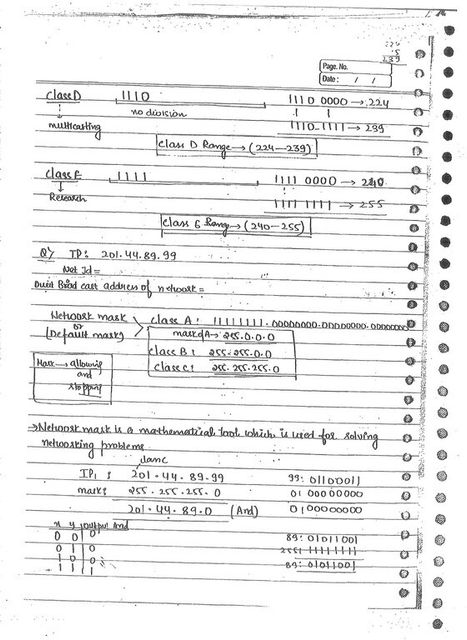 224
15
239
Page No.
Date : / /
Class D 1110 1110 0000 → 224
no division
multicasting 1110-1111 → 239
Class D Range → (224-239)
Class E 1111 1111 0000 → 240
Research 1111 1111 → 255
Class E Range → (240-255)
Q⟩ IP: 201.44.89.99
Net Id =
Broad cast address of network =
Network mask Class A: 11111111.00000000.00000000.00000000
or
(Default mask) mask of A → 255.0.0.0
Class B: 255.255.0.0
Class C: 255.255.255.0
Mask → allowing
and
stopping
⇒ Network mask is a mathematical tool which is used for solving
networking problems
IP1 : 201.44.89.99 99: 01100011
mask: 255.255.255.0 0: 00000000
201.44.89.0 (And) 0: 00000000
x y output And
0 0 0 89: 01011001
0 1 0 255: 11111111
1 0 0 89: 01011001
1 1 1